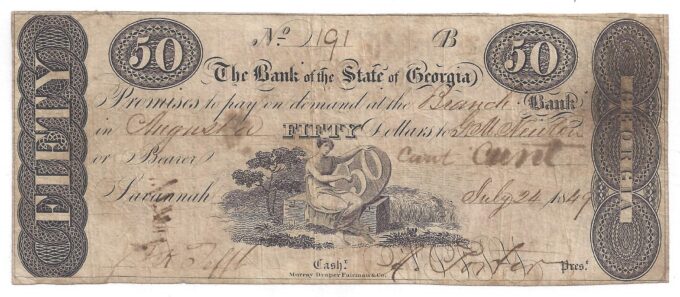 50 No 191 B 50
The Bank of the State of Georgia
Promises to pay on demand at the Branch Bank
in Augusta FIFTY Dollars to
or Bearer
50
Savannah July 24 1849
Cashr. Presr.
Murray Draper Fairman & Co.
FIFTY
GEORGIA